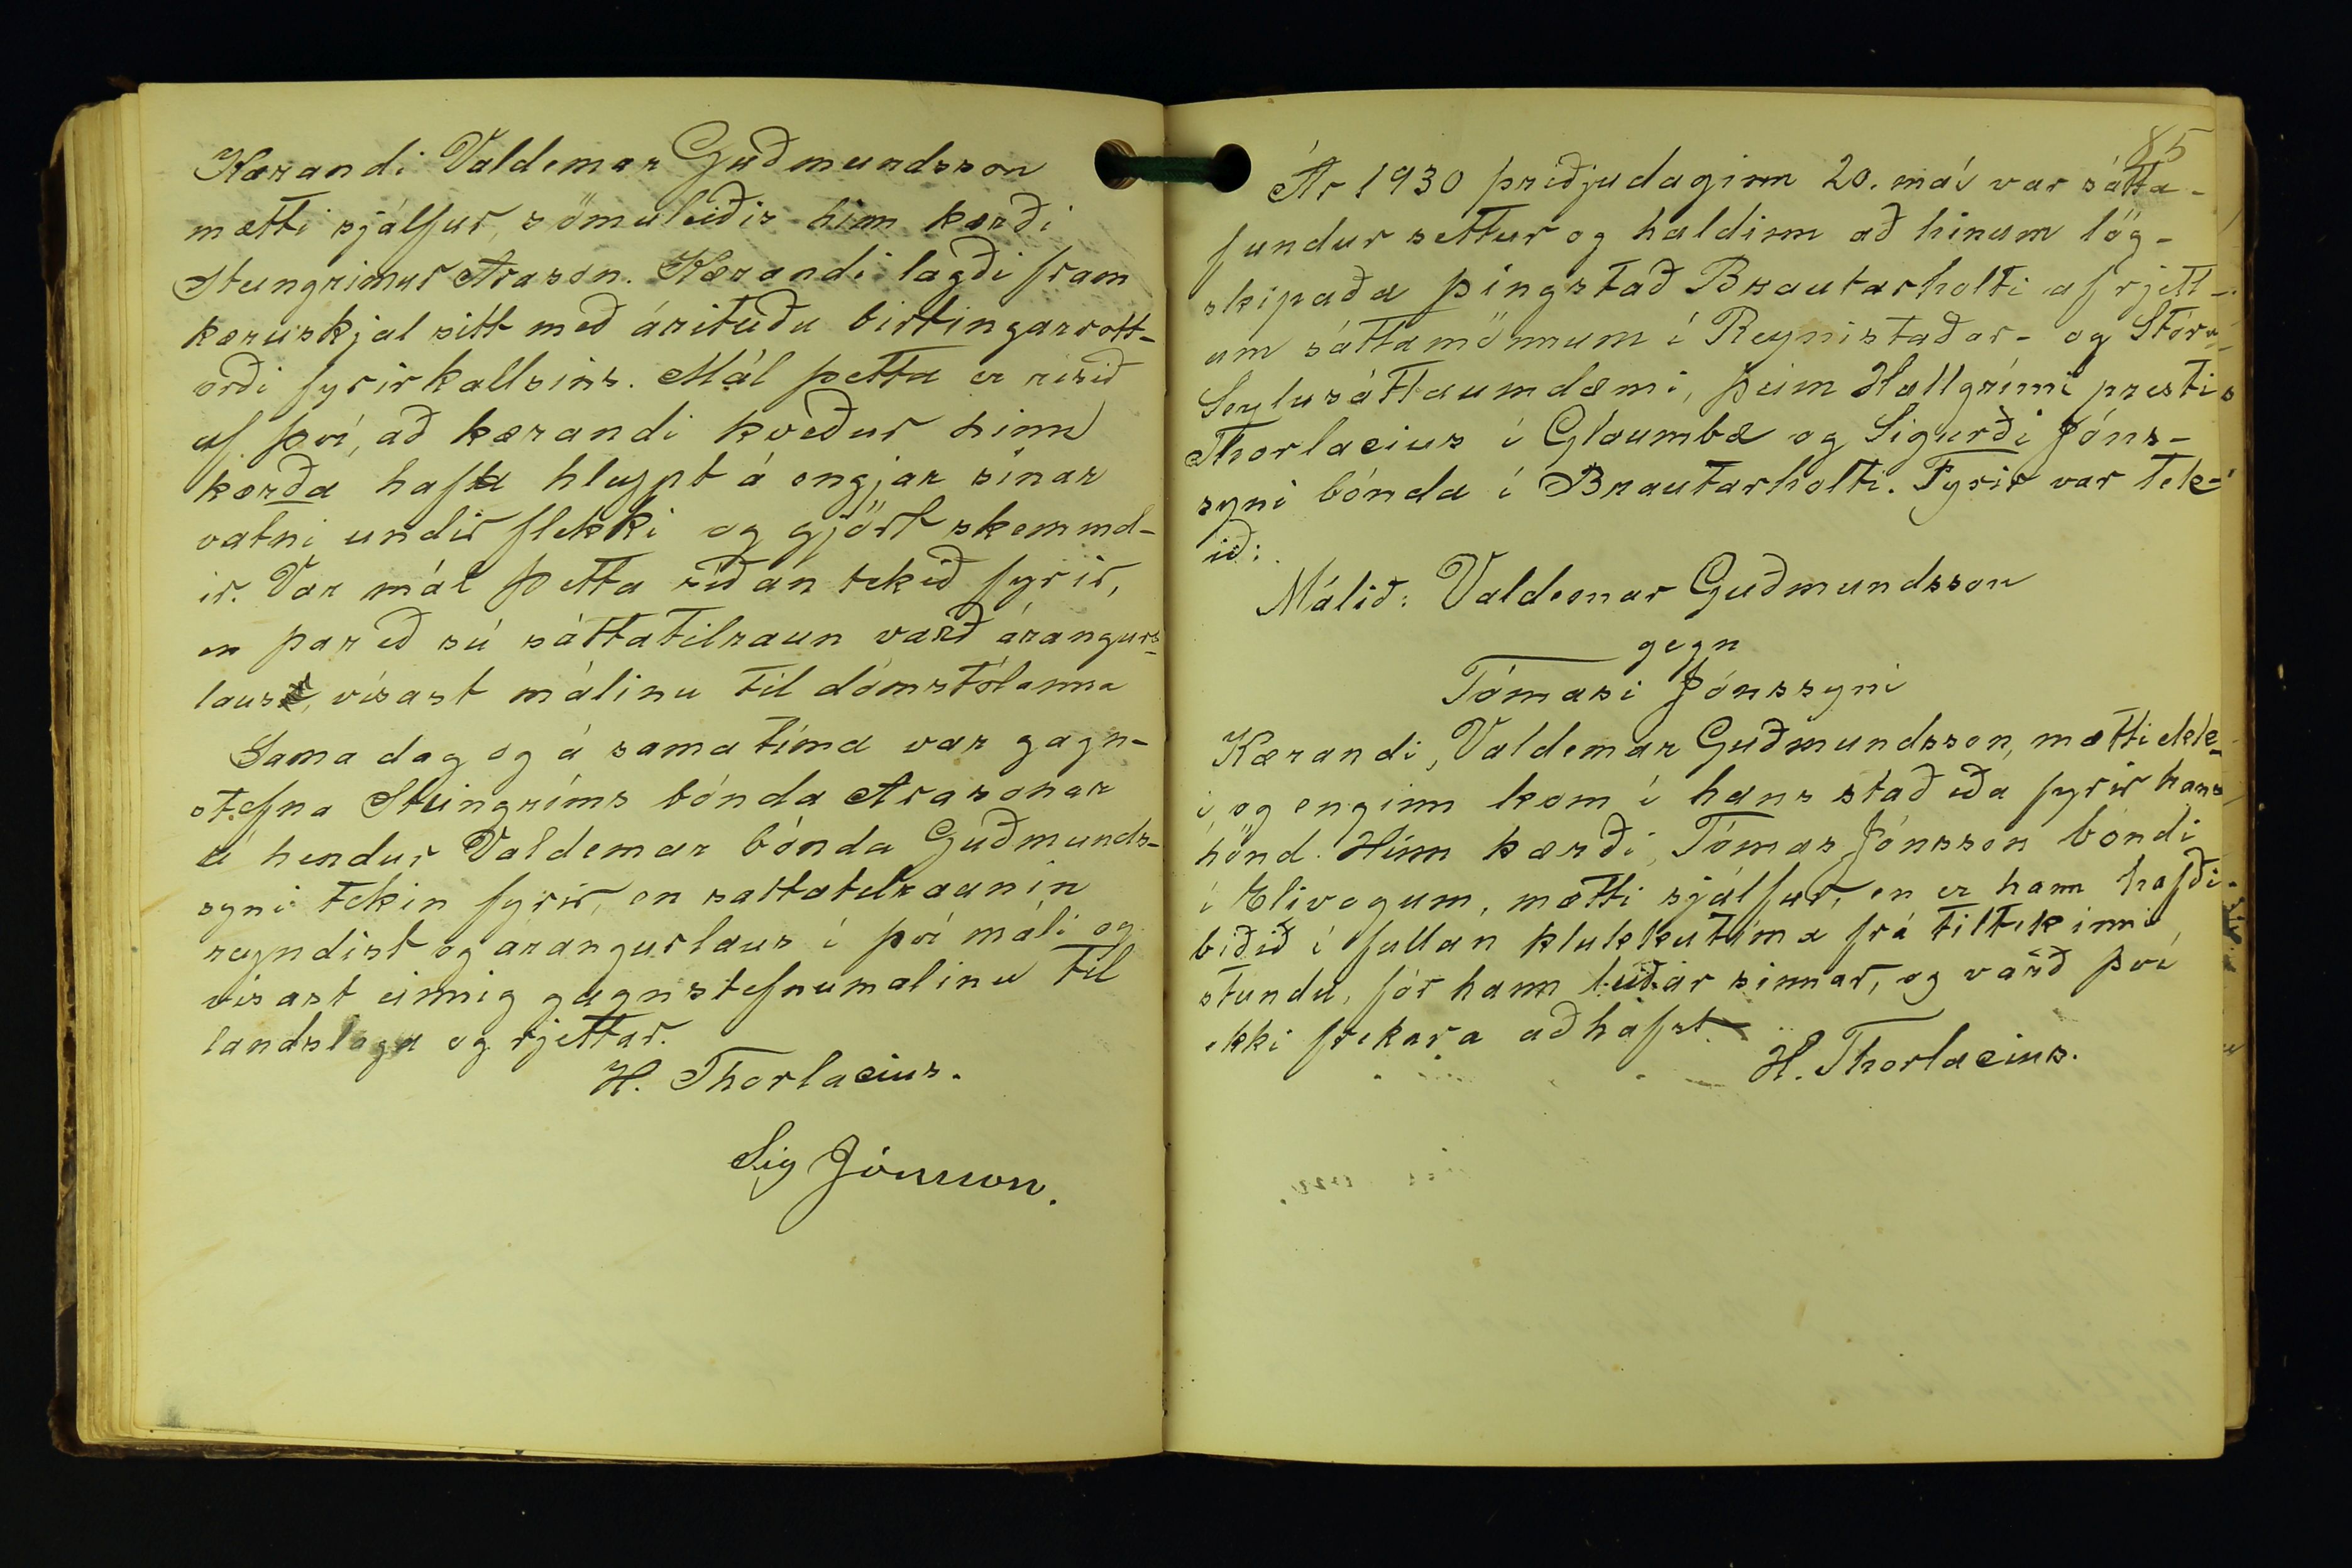 Kærandi Valdemar Guðmundsson
mætti sjálfur, sömuleiðis hinn kærði
Steingrímur Arason. Kærandi lagði fram
kæruskjal sitt með árituðu birtingarvott-
orði fyrirkallsins. Mál þetta er risið
af því, að kærandi kveður hinn
kærða hafa hleypt á engjar sínar
vatni undir flekki og gjört skemmd-
ir. Var mál þetta síðan tekið fyrir,
en par eð sú sáttatilraun varð árangurs-
laus, vísast málinu til dómstólanna
Sama dag og á sama tíma var gagn-
stefna Steingríms bónda Arasonar
á hendur Valdemar bónda Guðmunds-
syni tekin fyrir, en sattatilraunin
reyndist og arangurlaus í því máli og
vísast einnig gagnstefnumalinu til
landslaga og rjettar.
H. Thorlacius.
Sig Jónsson.
85
Ár 1930 þriðjudaginn 20. maí var sátta-
fundur settur og haldinn að hinum lög-
skipaða þingstað Brautarholti af rjett-
um sáttamönnum í Reynistaðar- og Stóru-
Seylusáttaumdæmi, þeim Hallgrími presti
Thorlacius í Glaumbæ og Sigurði Jóns-
syni bónda í Brautarholti. Fyrir var tek-
ið:
Málið: Valdemar Guðmundsson
gegn
Tómasi Jónssyni
Kærandi, Valdemar Guðmundsson, mætti ekk-
i, og enginn kom í hans stað eða fyrir hans
hönd. Hinn kærði, Tómas Jónsson bóndi
í Elivogum, mætti sjálfur, en er hann hafði
beðið í fullan klukkutíma frá tiltekinni
stundu, fór hann leiðar sinnar, og varð því
ekki frekara aðhafst
H. Thorlacius.